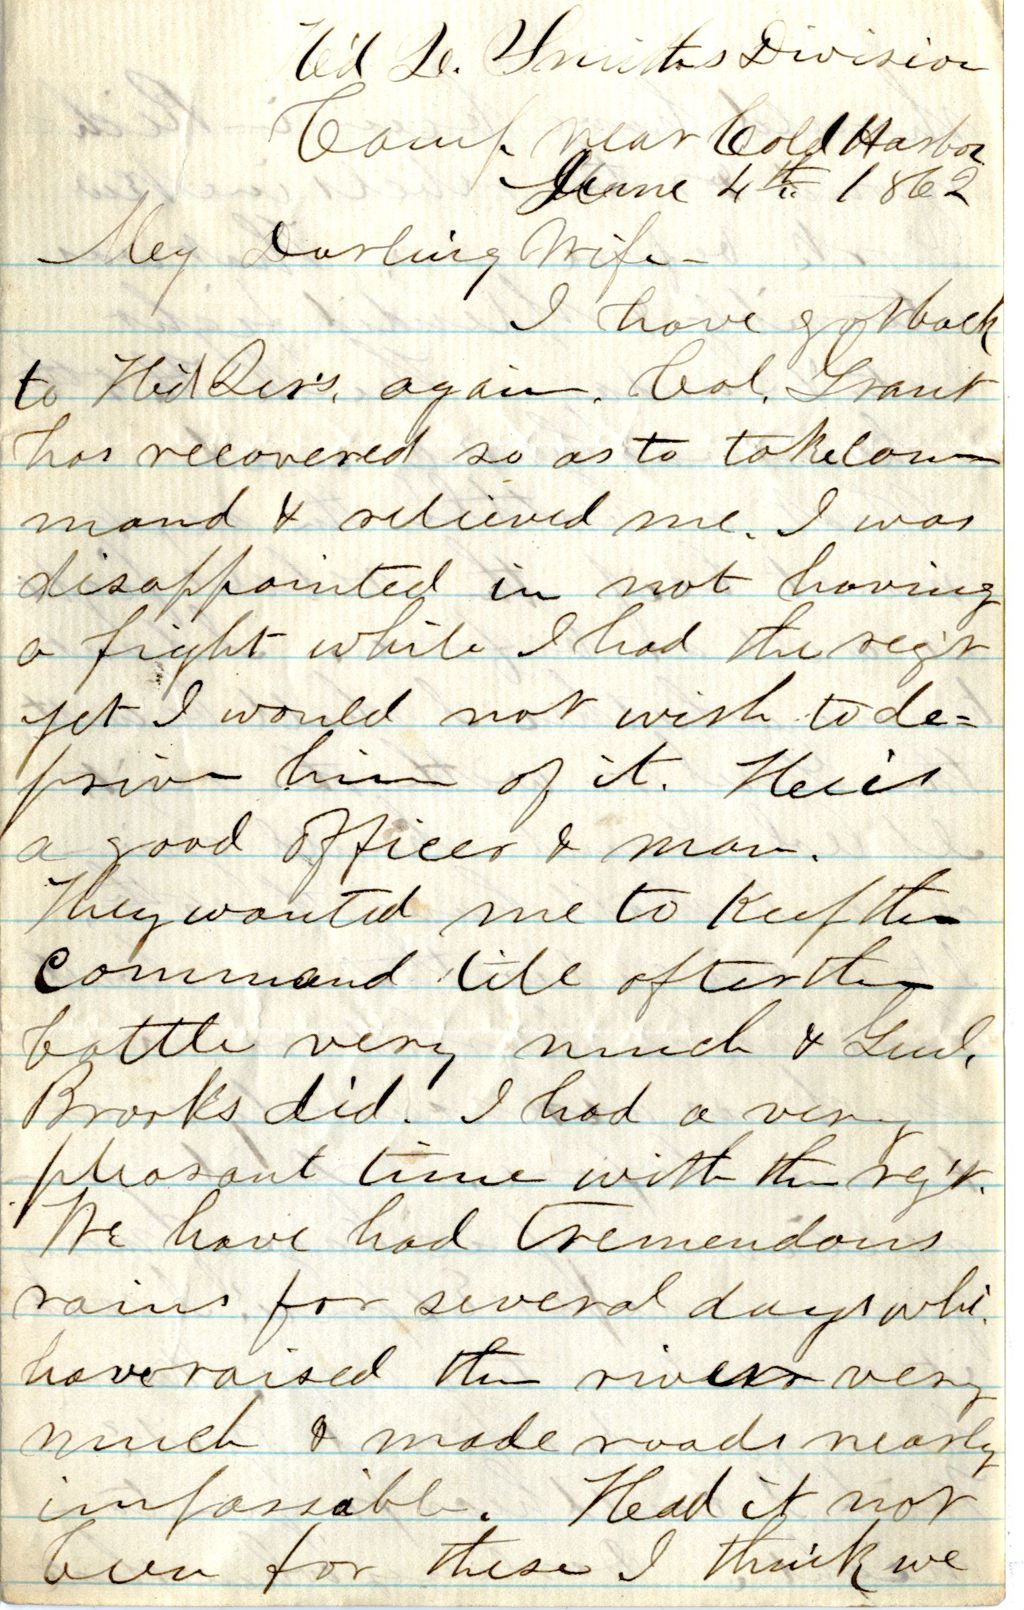 Hd Qr. Smiths Division
Camp near Cold Harbor
June 4th 1862
My Darling Wife-
I have got back
to Hd Qrs. again. Col. Grant
has recovered so as to take com
mand & relieved me. I was
disappointed in not having
a fight while I had the reg't
yet I would not wish to de=
prive him of it. He is
a good officer & man.
They wanted me to keep the
command till after the
battle very much & Genl.
Brooks did. I had a very
pleasant time with the reg't.
We have had tremendous
rains for several days whi.
have raised the rivers very
much & made roads nearly
impassible. Had it not
been for these I think we